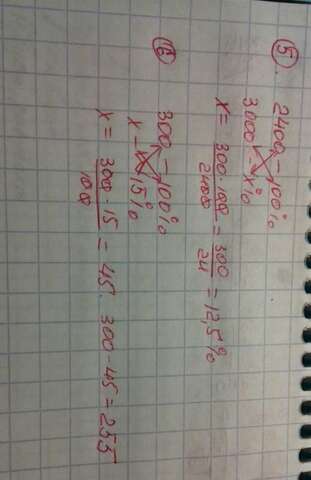 5
2400 – 100%
3000 – x%
x = 300·100/2400 = 300/24 = 12,5%
6
300 – 100%
x – 15%
x = 300·15/100 = 45. 300-45=255